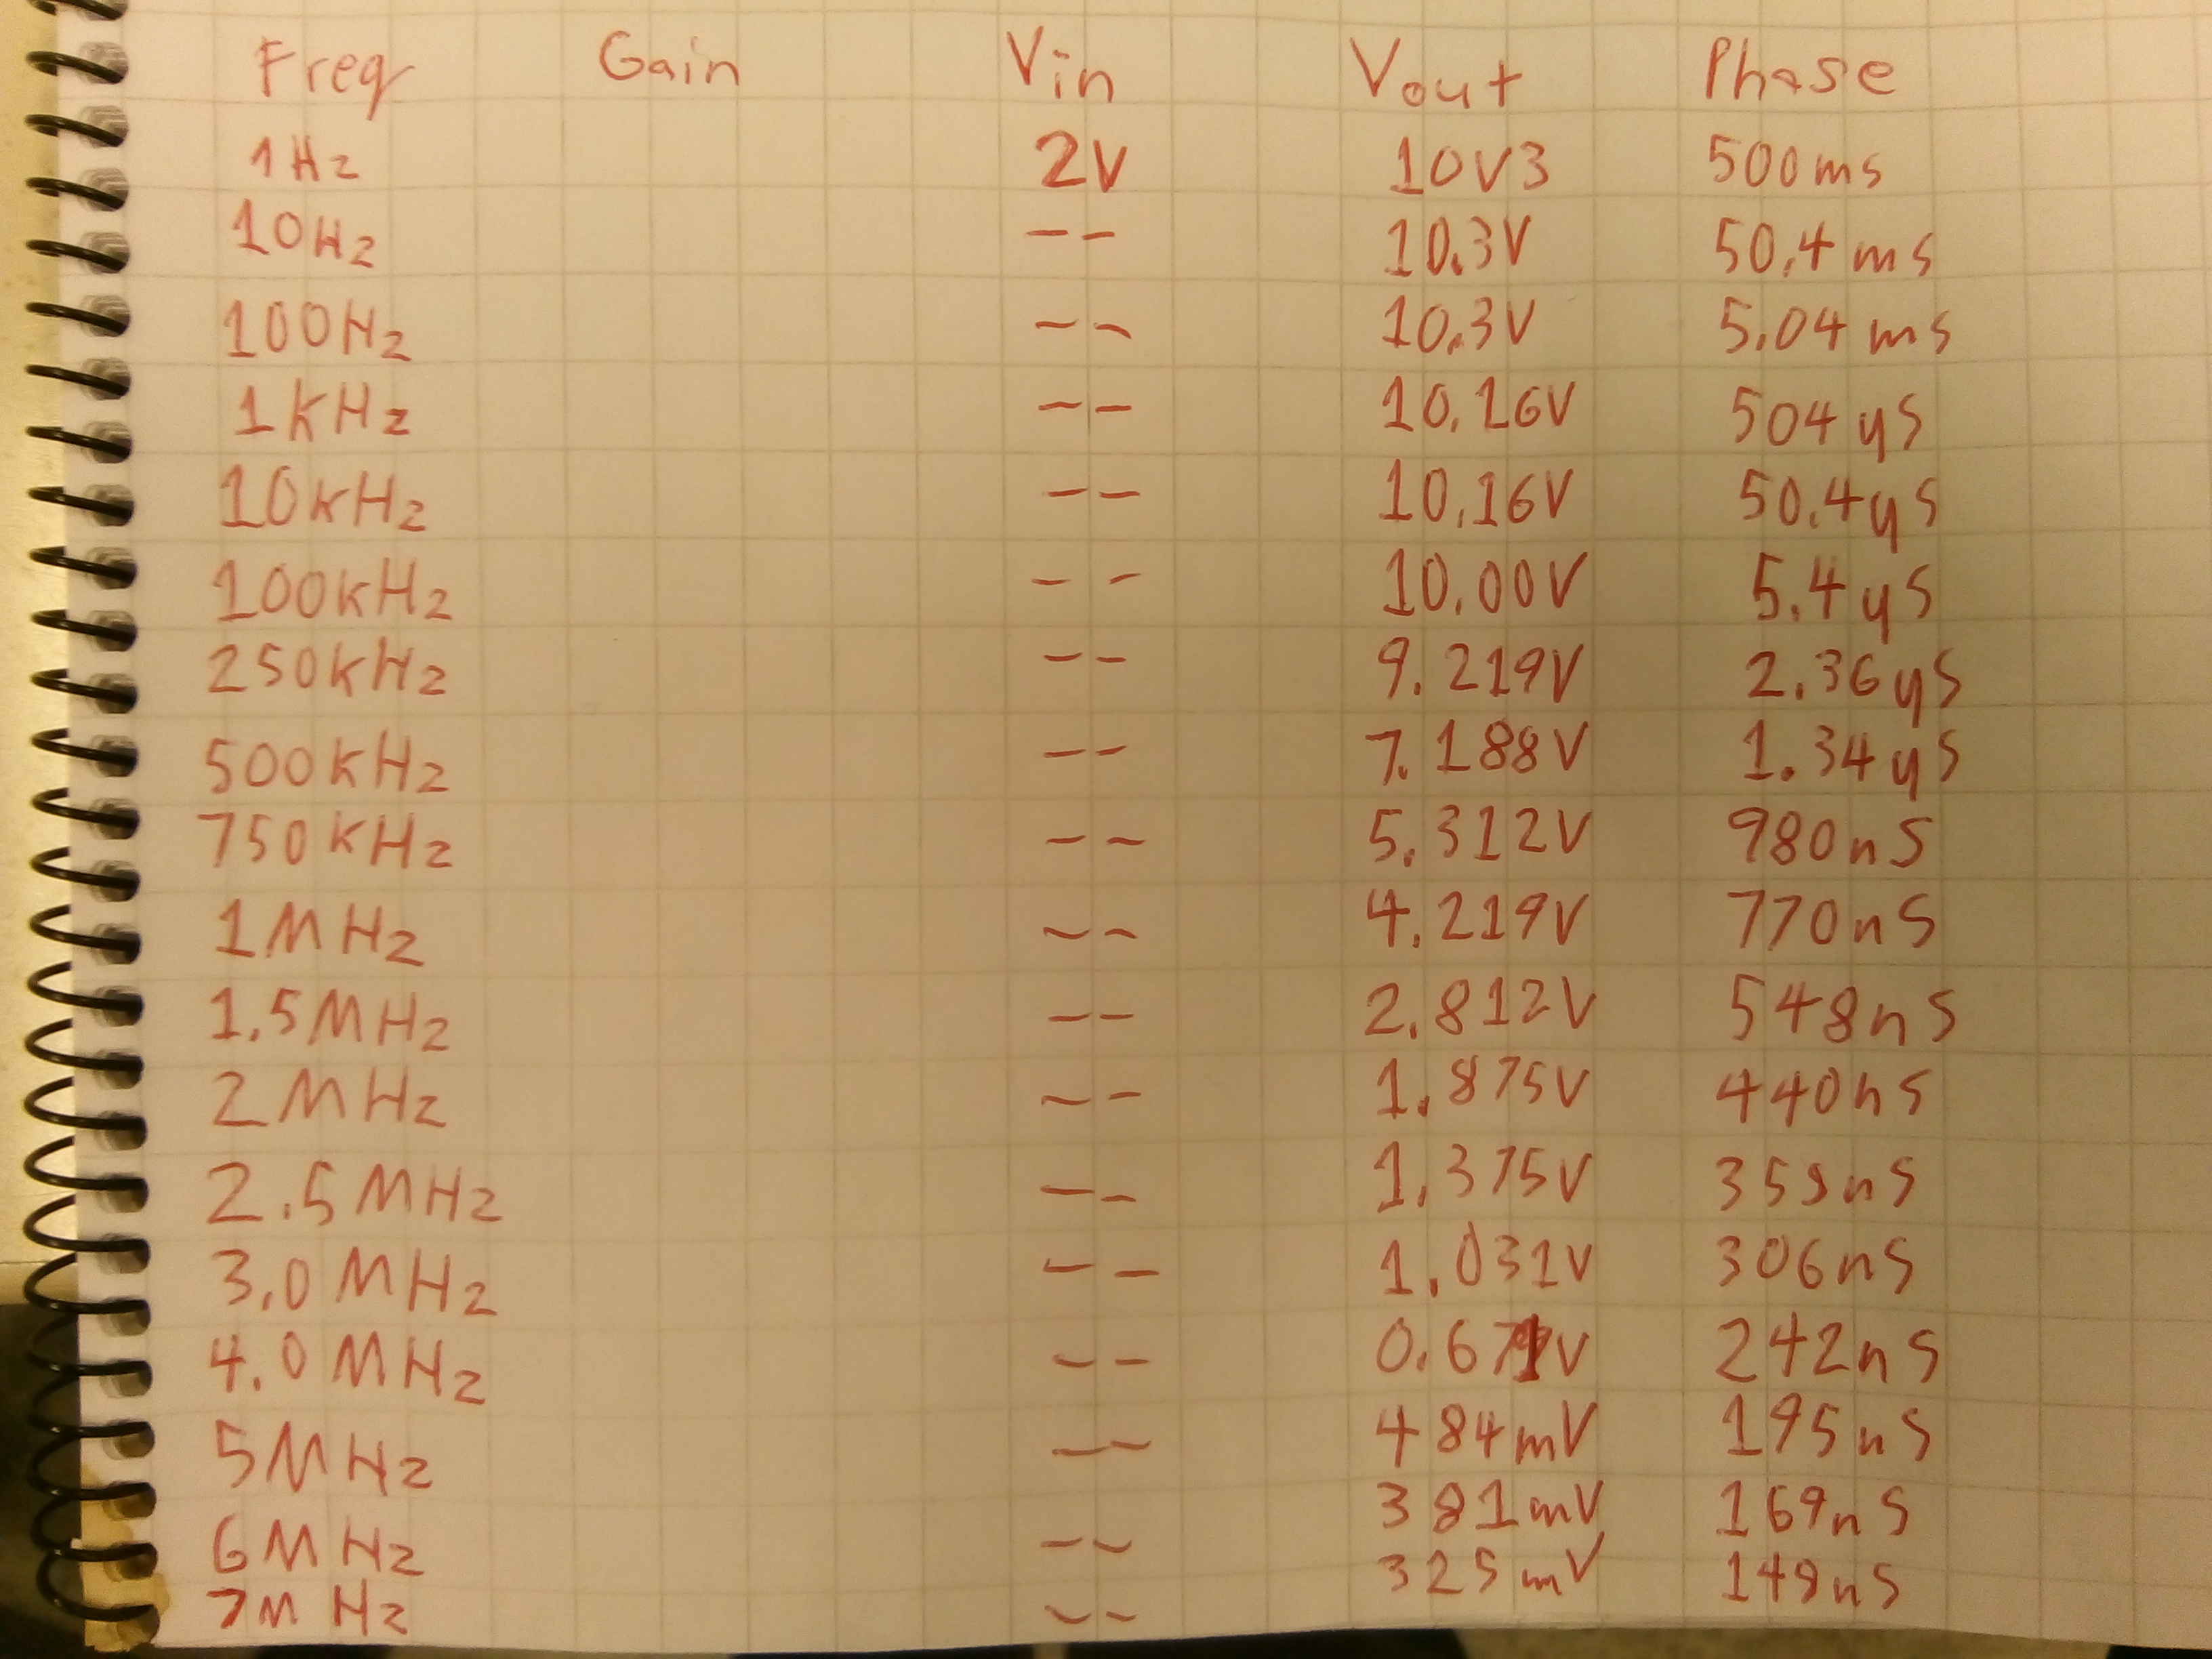 Freq Gain Vin Vout Phase
1Hz 2V 10V3 500ms
10Hz -- 10.3V 50.4ms
100Hz -- 10.3V 5.04ms
1KHz -- 10.16V 504yS
10KHz -- 10.16V 50.4yS
100KHz -- 10.00V 5.4yS
250KHz -- 9.219V 2.36yS
500KHz -- 7.188V 1.34yS
750KHz -- 5.312V 980nS
1MHz -- 4.219V 770nS
1.5MHz -- 2.812V 548nS
2MHz -- 1.875V 440nS
2.5MHz -- 1.375V
3.0MHz -- 1.031V 306nS
4.0MHz -- 242nS
5MHz -- 484mV 195nS
6MHz -- 381mV 169nS
7MHz -- 325mV 149nS